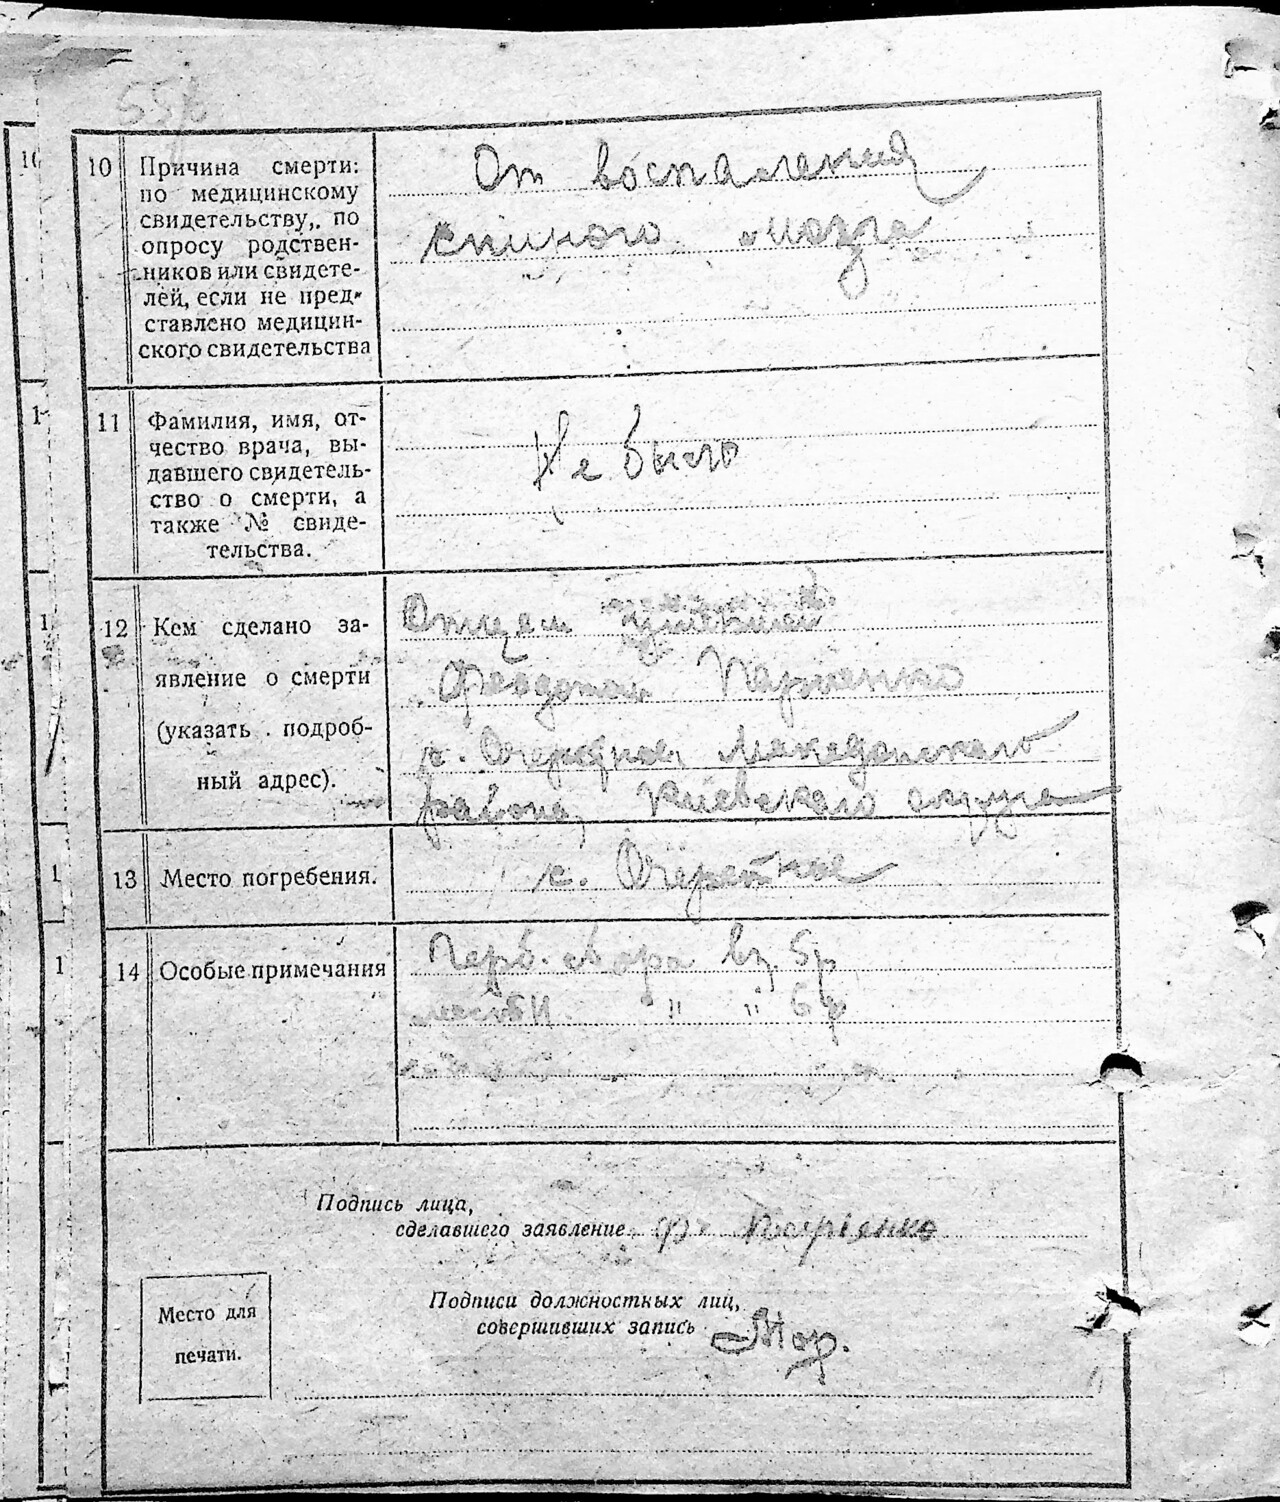 10
Причина смерти:
по медицинскому
свидетельству, по
опросу родствен-
ников или свидете-
лей, если не пред-
ставлено медицин-
ского свидетельства
От воспаления
спиного мозга
11
Фамилия, имя, от-
чество врача, вы-
давшего свидетель-
ство о смерти, а
также № свиде-
тельства.
Не было
12
Кем сделано за-
явление о смерти
(указать подроб-
ный адрес).
Отцом
Феодотом
района, Киевского округа
13
Место погребения.
с. Очеретное
14
Особые примечания
Герб. сбора вз. 5р
" " 6р
Подпись лица,
сделавшего заявление
Место для
печати.
Подписи должностных лиц,
совершивших запись